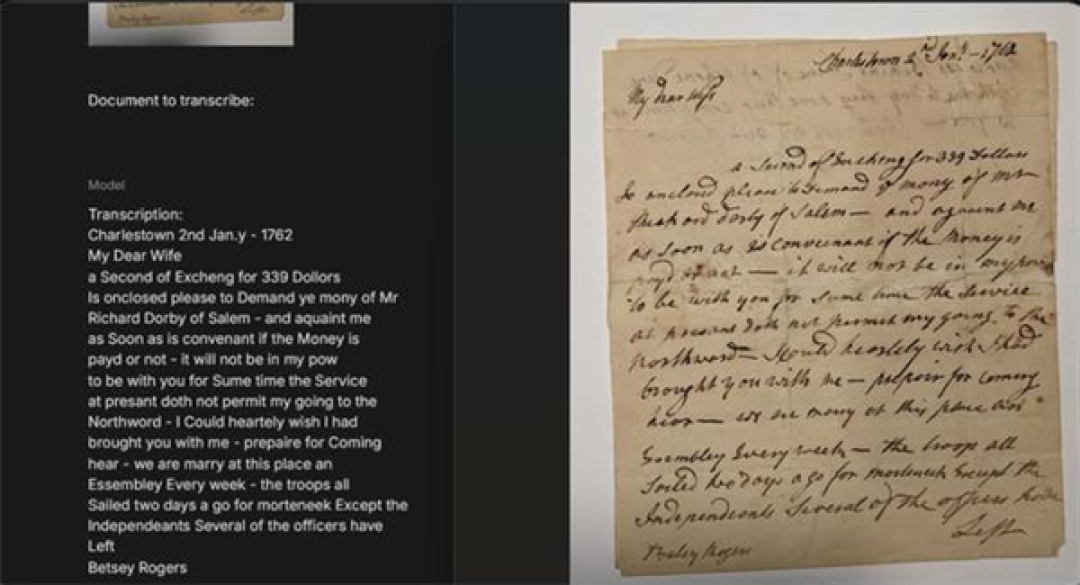 Document to transcribe:
Model
Transcription:
Charlestown 2nd Jan.y - 1762
My Dear Wife
a Second of Excheng for 339 Dollors
Is onclosed please to Demand ye mony of Mr
Richard Dorby of Salem - and aquaint me
as Soon as is convenant if the Money is
payd or not - it will not be in my pow
to be with you for Sume time the Service
at presant doth not permit my going to the
Northword - I Could heartely wish I had
brought you with me - prepaire for Coming
hear - we are marry at this place an
Essembley Every week - the troops all
Sailed two days a go for morteneek Except the
Independeants Several of the officers have
Left
Betsey Rogers
Charlestown 2nd Jany - 1762
My dear Wife
a Second of Excheng for 339 Dollars
Is enclosed please to Demand mony of Mr
of Salem - and aquaint me
as Soon as is Convenant if the Money is
or not - it will not be in my
to be with you for Sume time the Service
at presant doth not permit my going to the
Northword - I Could heartely wish I had
brought you with me - for Coming
hear - we are at this place
Essembley Every week - the troops all
Sailed two days a go for morteneek Except the
Independeants Several of the officers have
Left
Betsey Rogers